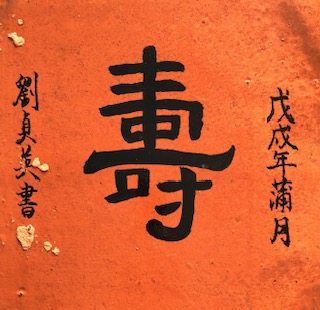 戊戌年蒲月
壽
劉貞英書